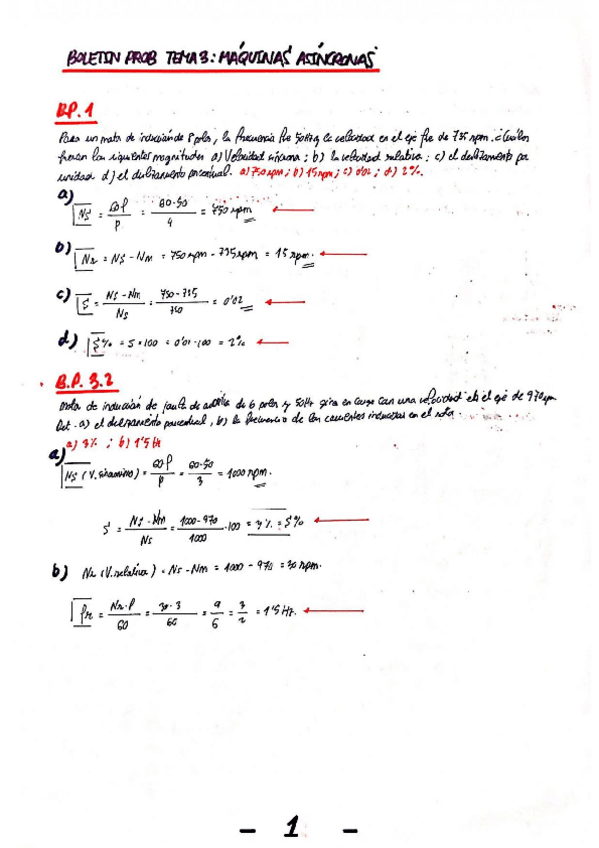 BOLETIN PROB TEMA 3: MÁQUINAS ASÍNCRONAS
B.P. 1
Para un motor de inducción de 8 polos, la frecuencia fue 50Hz y la velocidad en el eje fue de 735 rpm. ¿Cuáles
fueron las siguientes magnitudes a) Velocidad síncrona; b) la velocidad relativa; c) el deslizamiento por
unidad d) el deslizamiento porcentual. a) 750 rpm; b) 15 rpm; c) 0'02; d) 2%.
a) Ns = 60f/p = 60·50/4 = 750 rpm
b) Nr = Ns - Nm = 750 rpm - 735 rpm = 15 rpm.
c) S = Ns - Nm/Ns = 750-735/750 = 0'02
d) S% = S·100 = 0'02·100 = 2%
B.P. 3.2
motor de inducción de jaula de ardilla de 6 polos y 50Hz gira en carga con una velocidad en el eje de 970 rpm
Det. a) el deslizamiento porcentual, b) la frecuencia de las corrientes inducidas en el rotor.
a) 3% ; b) 1'5 Hz
a) Ns (V. síncronismo) = 60f/p = 60·50/3 = 1000 rpm.
S = Ns - Nm/Ns = 1000-970/1000 ·100 = 3% = S%
b) Nr (V. relativa) = Ns - Nm = 1000 - 970 = 30 rpm.
fr = Nr·P/60 = 30·3/60 = 9/6 = 3/2 = 1'5 Hz.
- 1 -